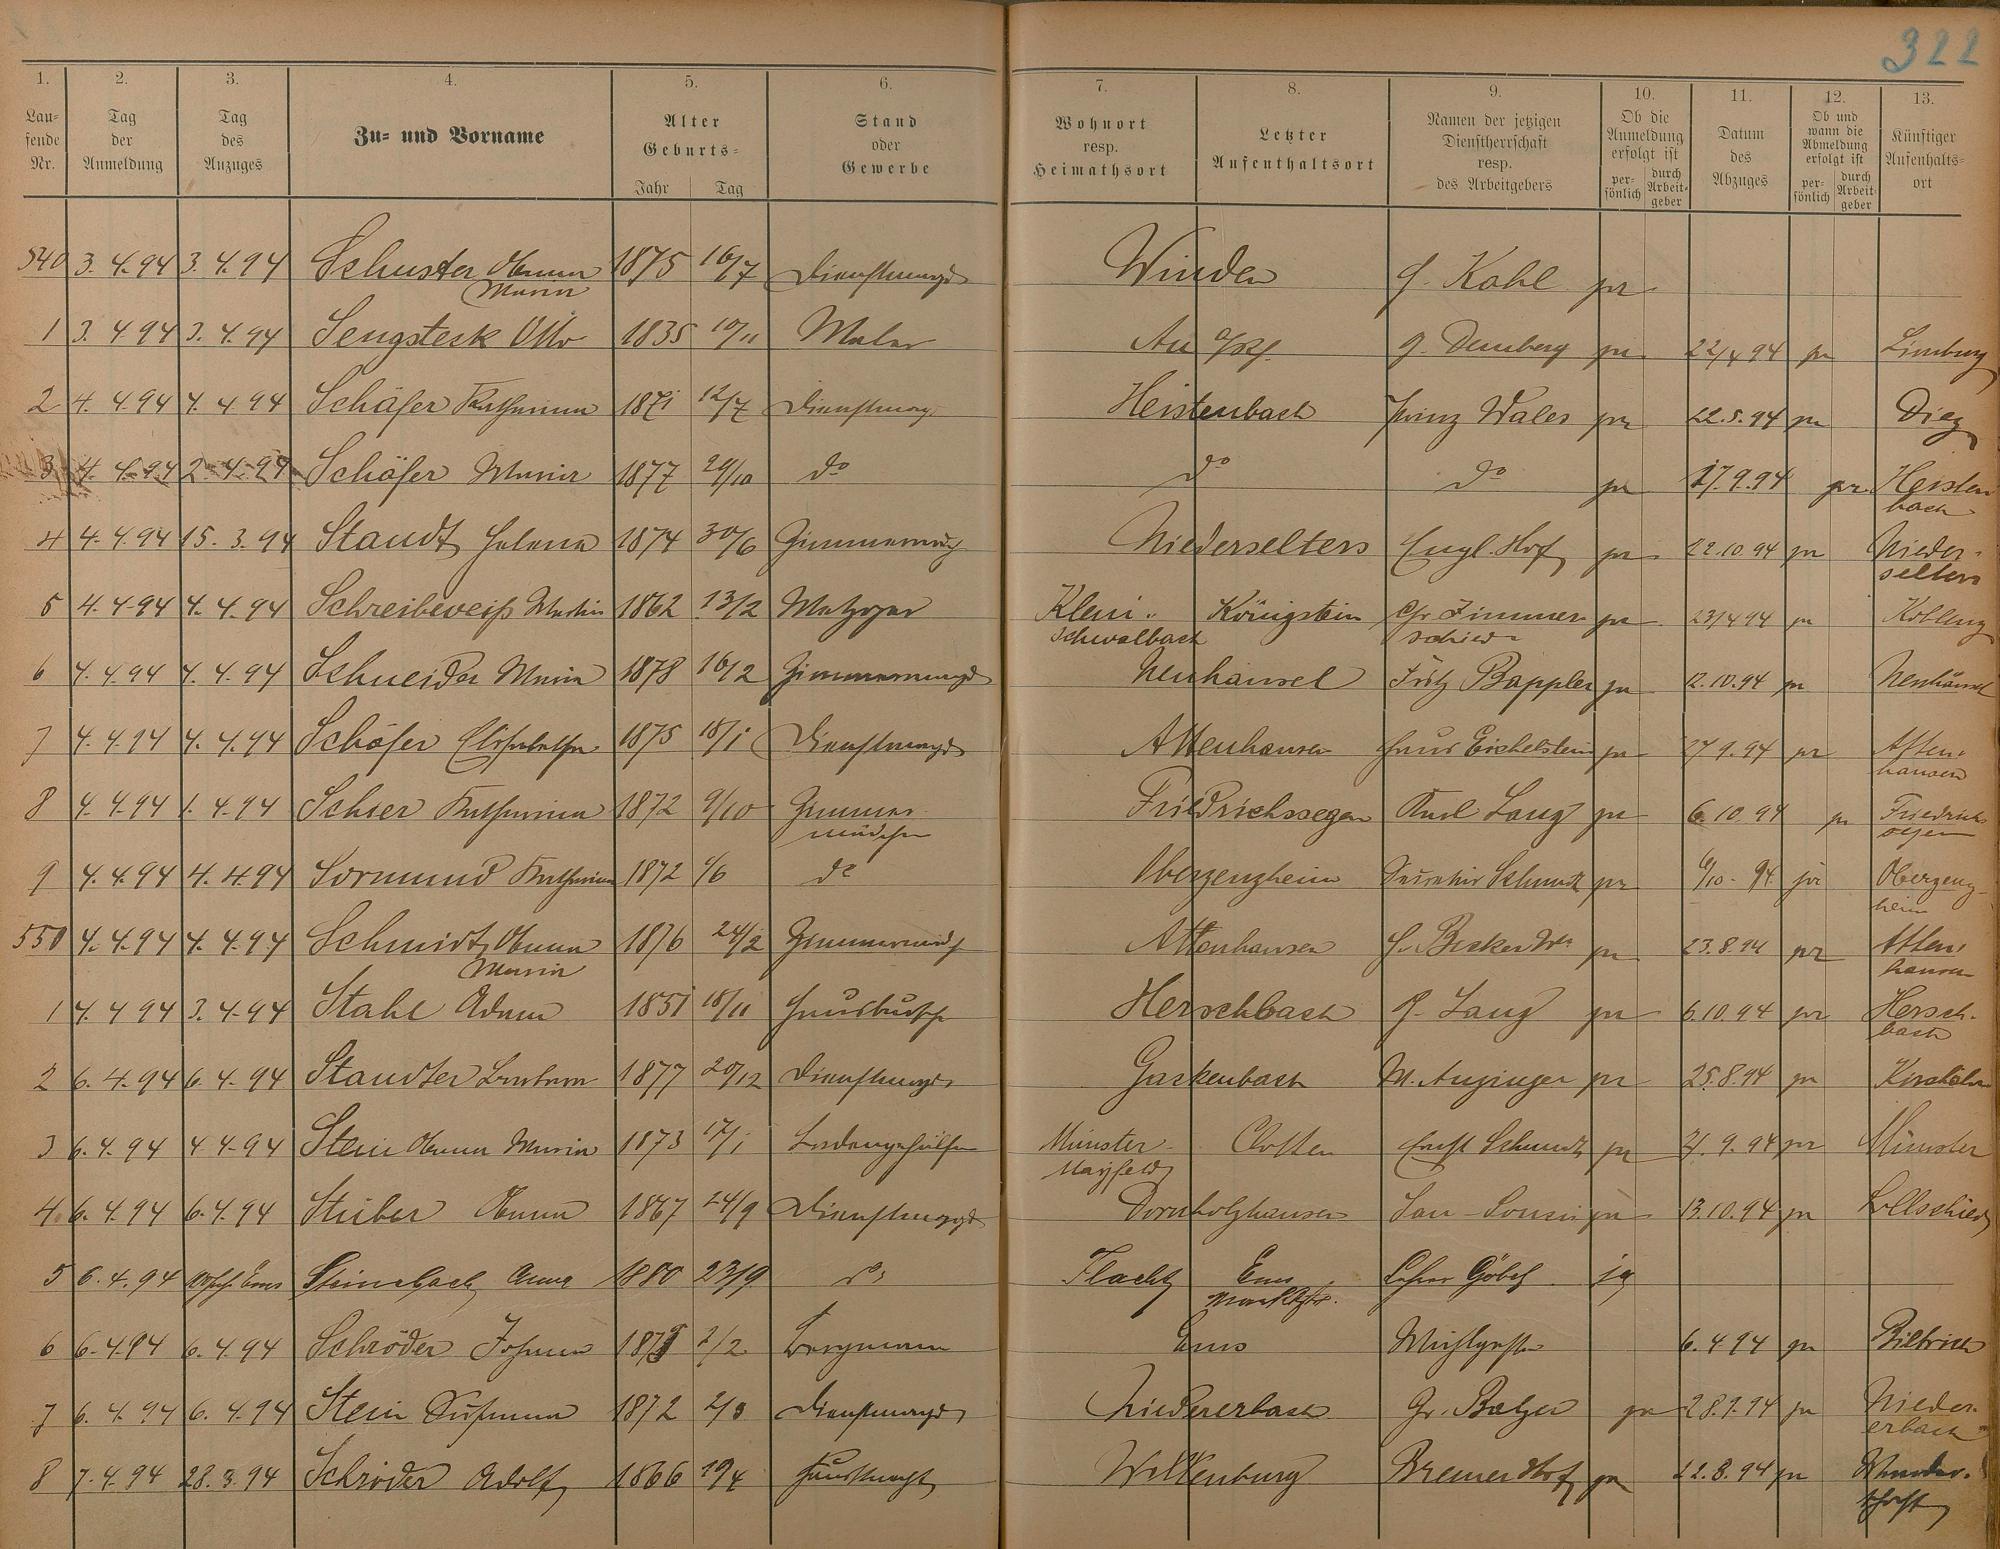 322
1. 2. 3. 4. 5. 6. 7. 8. 9. 10. 11. 12. 13.
Laufende Nr. Tag der Anmeldung Tag des Anzuges Zu- und Vorname Alter Geburts- Jahr Tag Stand oder Gewerbe Wohnort resp. Heimathsort Letzter Aufenthaltsort Namen der jetzigen Dienstherrschaft resp. des Arbeitgebers Ob die Anmeldung erfolgt ist persönlich durch Arbeitgeber Datum des Abzuges Ob und wann die Abmeldung erfolgt ist persönlich durch Arbeitgeber Künftiger Aufenthaltsort
540 3. 4. 94 3. 4. 94 Schuster Anna 1875 16/7 Dienstmagd Winden J. Kohl pr
Maria
1 3. 4. 94 3. 4. 94 Sengsteck Otto 1835 10/11 Maler Au 22/4 94 pr Limburg
2 4. 4. 94 4. 4. 94 Schäfer Katharina 1871 12/7 Dienstmagd Heistenbach Prinz Wales pr 22. 5. 94 pr Diez
3 4. 4. 94 2. 4. 94 Schäfer Maria 1877 29/10 do do do pr 17. 9. 94 pr Heisten
bach
4 4. 4. 94 15. 3. 94 Staudt Helena 1874 30/6 Zimmermdch Niederselters Engl. Hof pr 22. 10. 94 pr Nieder-
selters
5 4. 4. 94 4. 4. 94 Schreibeweiß Martin 1862 13/2 Metzger Klein- Königstein Chr. Zimmer pr 23/4 94 pr Koblenz
schwalbach schied
6 4. 4. 94 4. 4. 94 Schneider Maria 1878 16/2 Zimmermagd Neuhäusel Fritz Bappler pr 12. 10. 94 pr Neuhäusel
7 4. 4. 94 4. 4. 94 Schäfer Elisabetha 1875 18/1 Dienstmagd Attenhausen Haus Eichelstein pr 27. 9. 94 pr Atten-
hausen
8 4. 4. 94 1. 4. 94 Scheer Katharina 1872 9/10 Zimmer- Friedrichssegen Karl Lang pr 6. 10. 94 pr Friedrichs
mädchen segen
9 4. 4. 94 4. 4. 94 Sormund Katharina 1872 do Oberzeuzheim Schmidt pr 6/10. 94 pr Oberzeuz-
heim
550 4. 4. 94 4. 4. 94 Schmidt Anna 1876 24/2 Zimmermdch Attenhausen H. Becker Ww pr 23. 8. 94 pr Atten
Maria hausen
1 4. 4. 94 3. 4. 94 Stahl Adam 1851 18/11 Hausbursche Herschbach Lang pr 6. 10. 94 pr Hersch-
bach
2 6. 4. 94 6. 4. 94 Staudter Barbara 1877 20/12 Dienstmagd Gackenbach M. Anzinger pr 25. 8. 94 pr
3 6. 4. 94 4. 4. 94 Stein Anna Maria 1873 17/1 Ladengehülfin Münster- Clotten Ernst Schmidt pr 21. 9. 94 pr Münster
Mayfeld
4 6. 4. 94 6. 4. 94 Stuber Anna 1867 24/9 Dienstmagd Dornholzhausen San-Souci pr 13. 10. 94 pr Lollschied
5 6. 4. 94 Ems Steinebach Anna 1880 23/9 do Flacht Ems Lehrer Göbel ja
Marktstr.
6 6. 4. 94 6. 4. 94 Schröder Johann 2/2 Bergmann Ems 6. 4 94 pr Biebrich
7 6. 4. 94 6. 4. 94 Stein Susanna 1872 Dienstmagd Niedererbach Gr. Balzer pr 28. 9. 94 pr Nieder-
erbach
8 7. 4. 94 28. 3. 94 Schröder Adolf 1866 19/4 Hausknecht Bremer Hof pr 22. 8. 94 pr Wander-
schaft